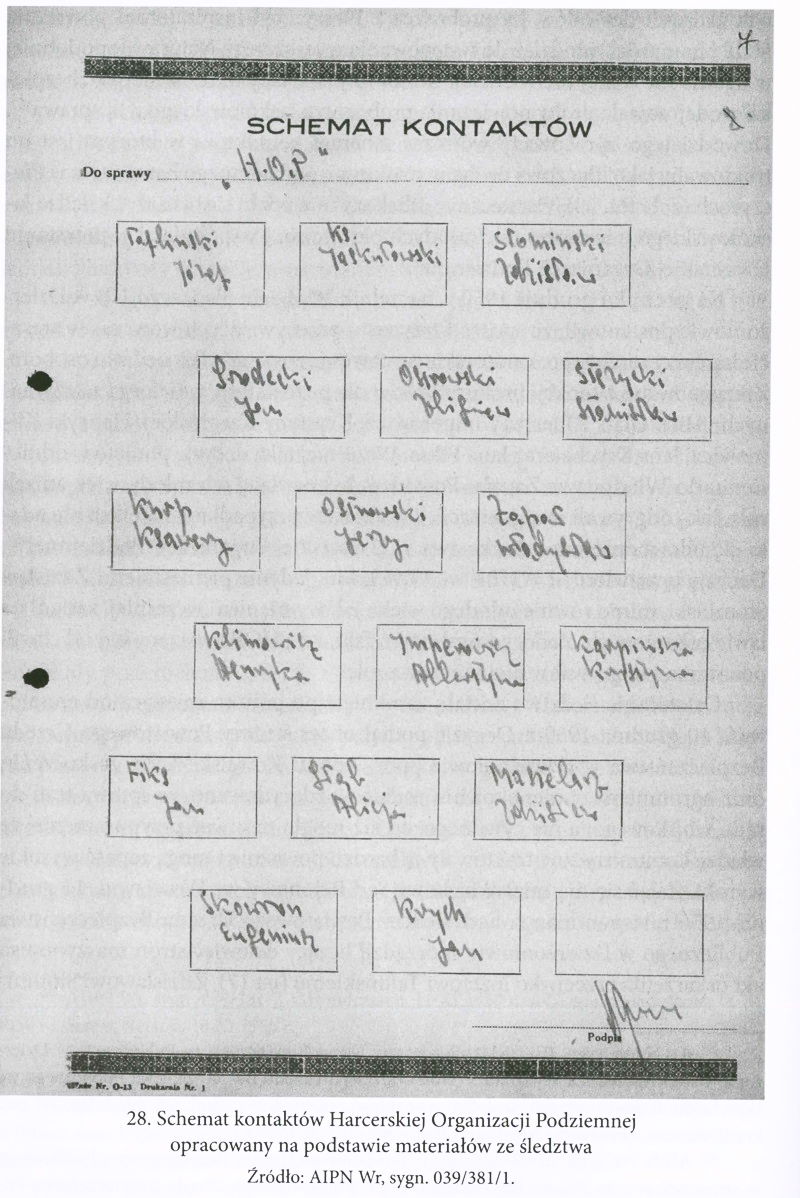 7
SCHEMAT KONTAKTÓW
Do sprawy „H.O.P"
Tafliński
Józef
Ks.
Słomiński
Zdzisław
Srodecki
Jan
Ostrowski
Zbigniew
Siężycki
Stanisław
Knop
Ksawery
Ostrowski
Jerzy
Zapas
Władysław
Klimowicz
Henryka
Albertyna
Karpińska
Krystyna
Fiks
Jan
Alicja
Masielarz
Zdzisław
Skowron
Eugeniusz
Krych
Jan
Podpis
Wzór Nr. O-13 Drukarnia Nr. 1
28. Schemat kontaktów Harcerskiej Organizacji Podziemnej
opracowany na podstawie materiałów ze śledztwa
Źródło: AIPN Wr, sygn. 039/381/1.